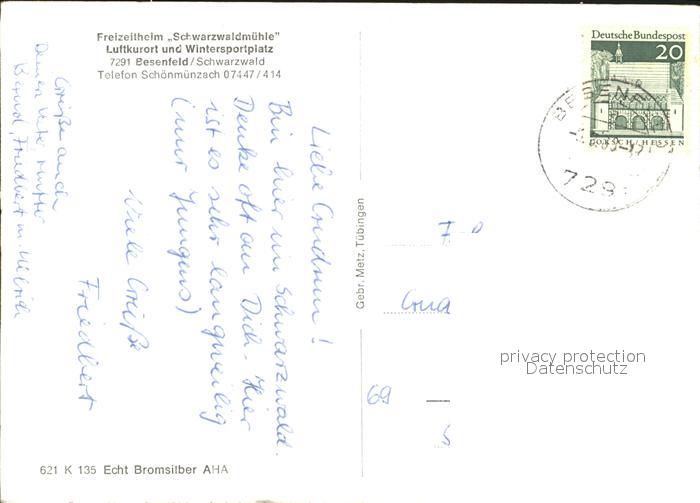 Freizeitheim „Schwarzwaldmühle"
Luftkurort und Wintersportplatz
7291 Besenfeld / Schwarzwald
Telefon Schönmünzach 07447 / 414
Liebe Gudrun!
Bin hier im Schwarzwald.
Denke oft an Dich. Hier
ist es sehr langweilig
(nur Jungens)
Viele Grüße
Friedbert
Grüße auch
Deinen Vater, Mutter
Bernd, Friedbert u. Ulrich
621 K 135 Echt Bromsilber AHA
Gebr. Metz, Tübingen
Deutsche Bundespost
20
LORSCH/HESSEN
BESENF
729
Gud
69
privacy protection
Datenschutz